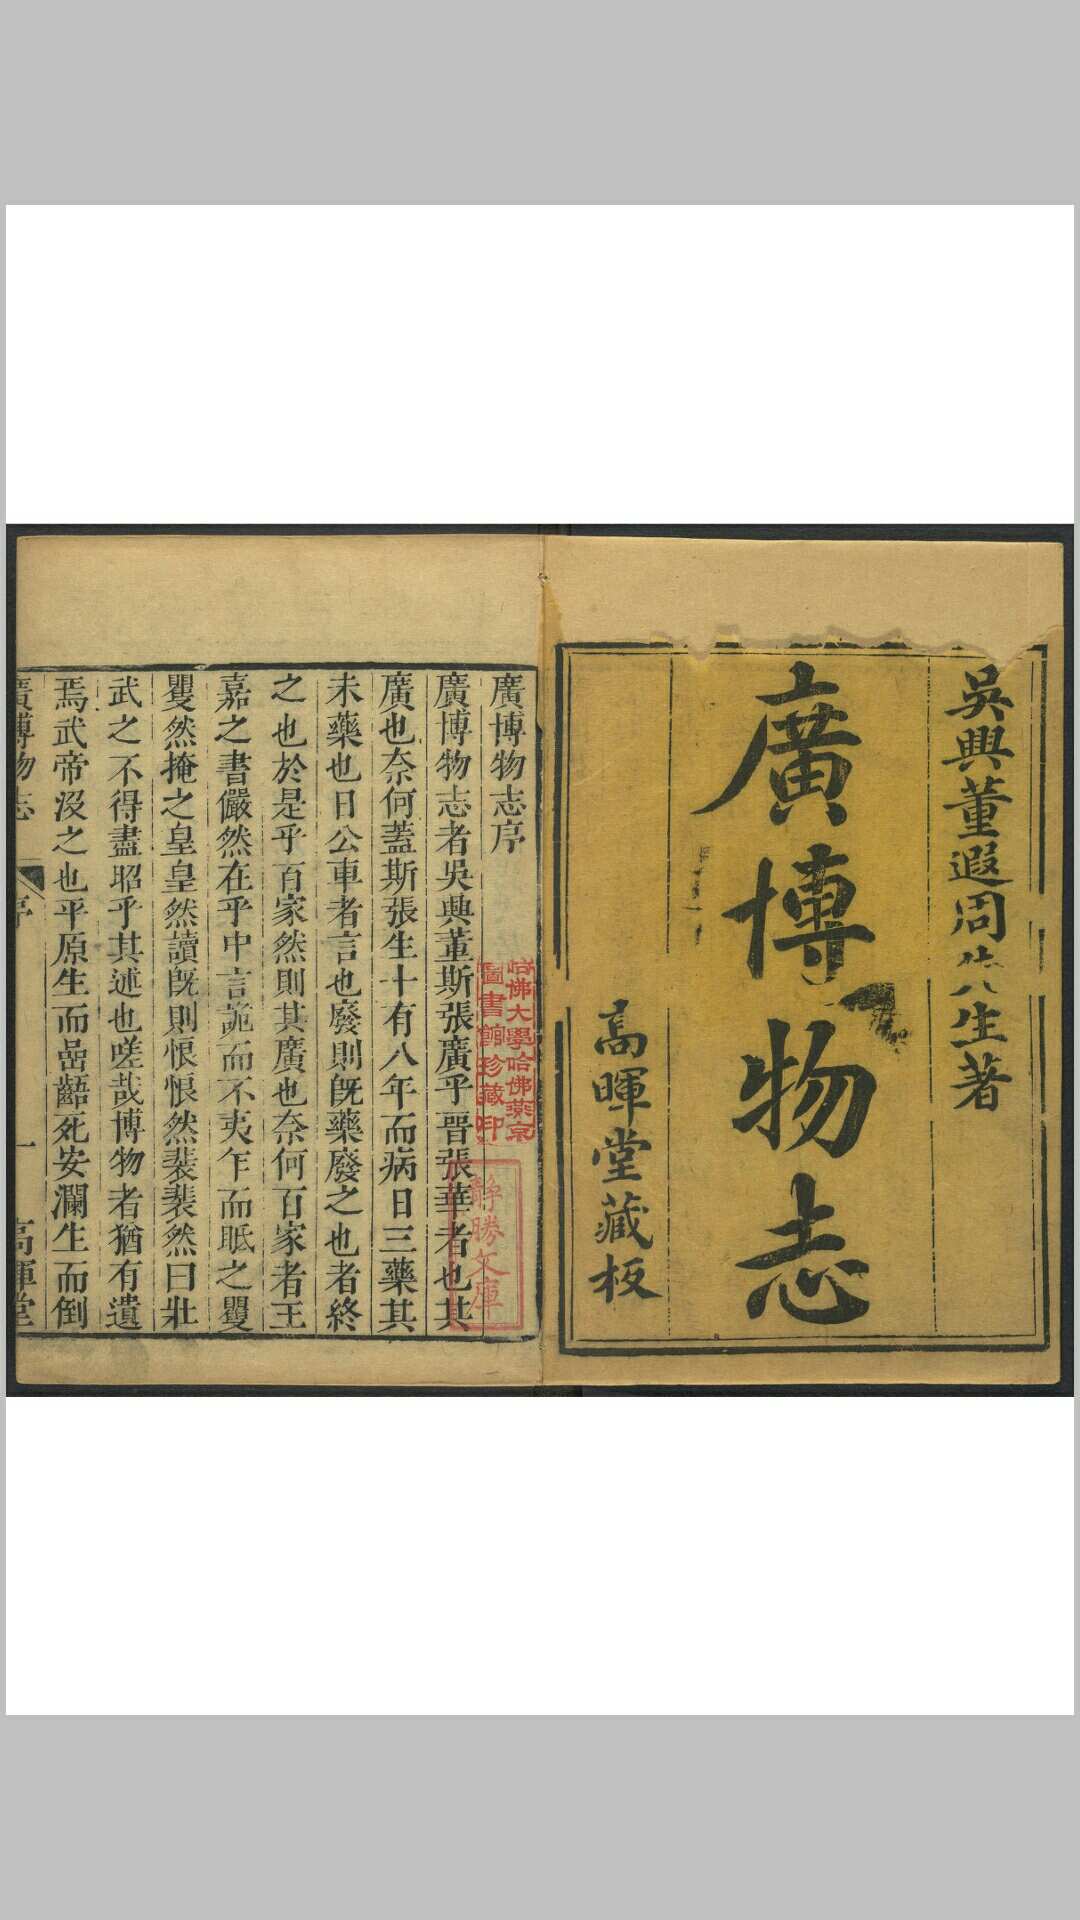 吳興董遐周先生著
廣博物志
高暉堂藏板
廣博物志序
廣博物志者吳興董斯張廣乎晉張華者也其
廣也奈何蓋斯張生十有八年而病日三藥其
未藥也日公車者言也廢則旣藥廢之也者終
之也於是乎百家然則其廣也奈何百家者王
嘉之書儼然在乎中言詭而不夷乍而眡之矍
矍然掩之皇皇然讀旣則悢悢然裴裴然曰壯
武之不得盡昭乎其述也嗟哉博物者猶有遺
焉武帝沒之也平原生而嵒齬死安瀾生而倒
廣博物志
序
一
高暉堂
哈佛大學哈佛燕京
圖書館珍藏印
靜勝文庫